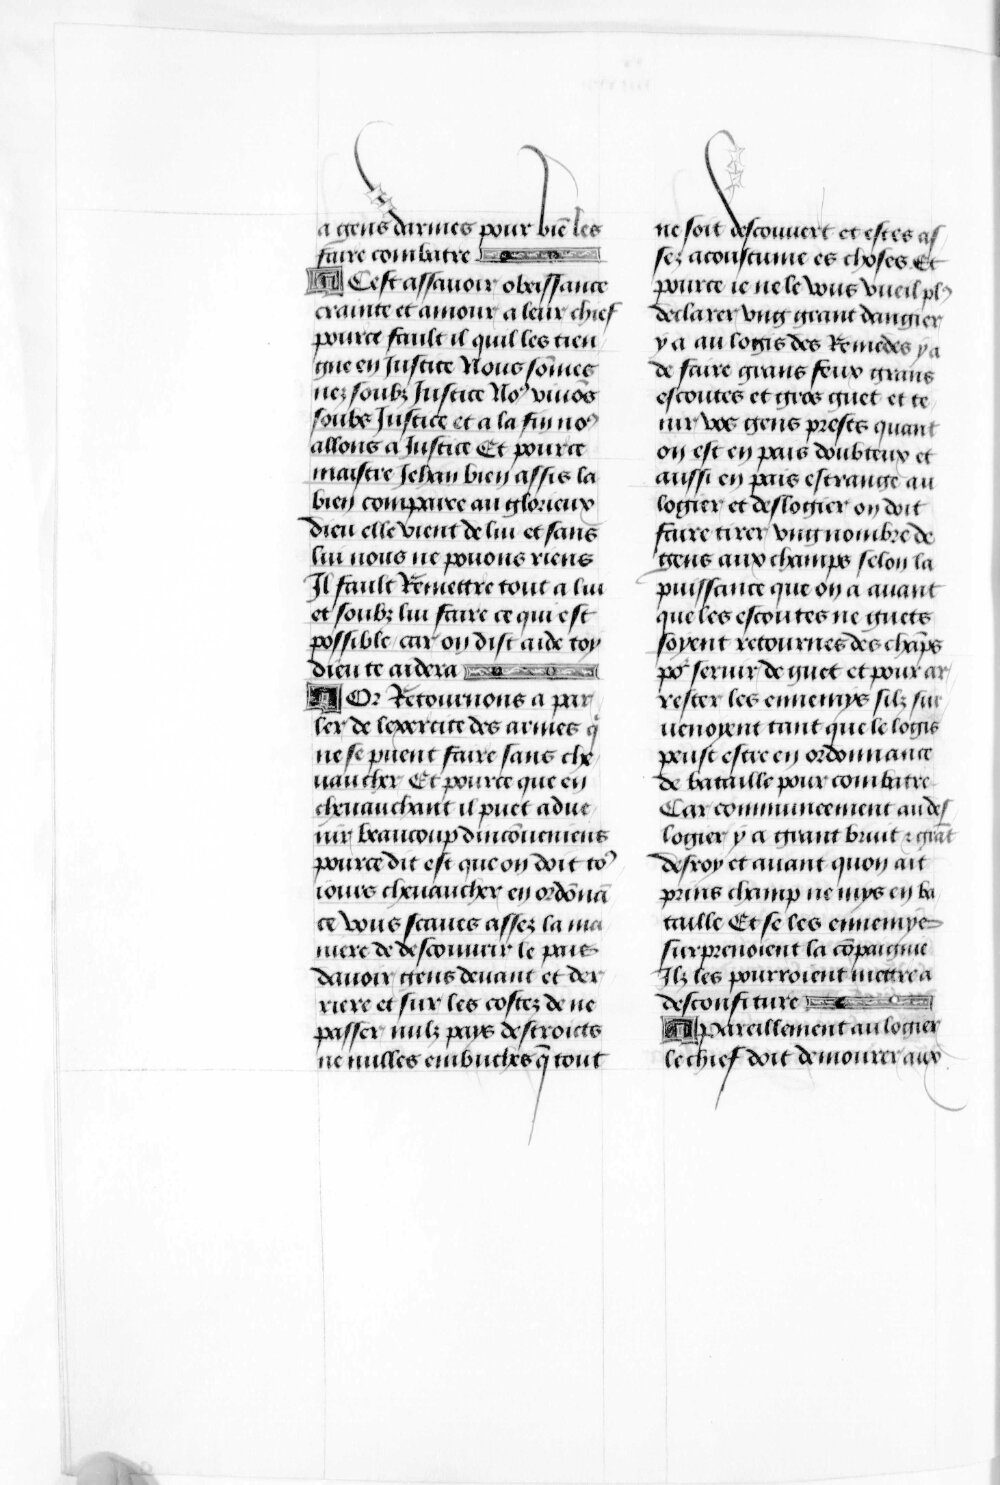 a gens darmes pour biē les
faire combatre
Cest assauoir obeissance
crainte et amour a leur chief
pource fault il quil les tien
gne en Justice Nous sōmes
nez soubz Justice Noꝰ viuōs
soubs Justice et a la fin noꝰ
allons a Justice Et pource
maistre Jehan bien assis la
bien comparee au glorieux
dieu elle vient de lui et sans
lui nous ne pouons riens
Il fault Remettre tout a lui
et soubz lui faire ce qui est
possible car on dist aide toy
dieu te aidera
Or Retournons a par
ler de lexercite des armes q̄
ne se puent faire sans che
uaucher Et pource que en
cheuauchant il puet adue
nir beaucoup dincōueniens
pource dit est que on doit toꝰ
iours cheuaucher en ordōnā
ce vous scaues assez la ma
niere de descouurir le pais
dauoir gens deuant et der
riere et sur les costez de ne
passer nulz pays destroicts
ne nulles embuches q̄ tout
ne soit descouuert et estes as
sez acoustume es choses Et
pource ie ne le vous vueil plꝰ
declarer vng grant dangier
y a au logis des Remedes y a
de faire grans feux grans
escoutes et gros guet et te
nir vos gens prests quant
on est en pais doubteux et
aussi en pais estrange au
logier et deslogier on doit
faire tirer vng nombre de
gens aux champs selon la
puissance que on a auant
que les escoutes ne guets
soyent retournes des chāps
poꝰ seruir de guet et pour ar
rester les ennemys silz sur
uenoyent tant que le logis
peust estre en ordonnance
de bataille pour combatre
Car communcement au des
logier y a grant bruit ⁊ grāt
desroy et auant quon ait
prins champ ne mys en ba
taille Et se les ennemys
surprenoient la cōpaignie
Ilz les pourroient mettre a
desconfiture
Pareillement au logier
le chief doit demourer aux